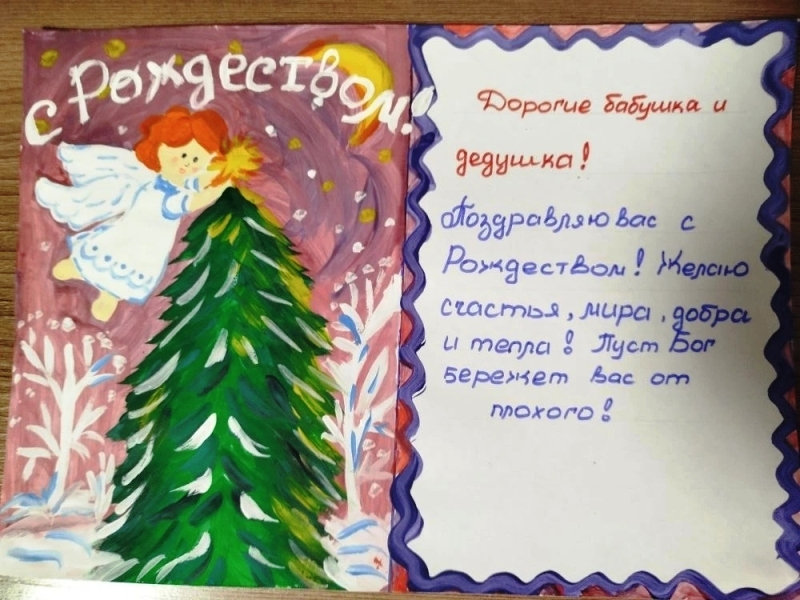 С Рождеством!
Дорогие бабушка и
дедушка!
Поздравляю вас с
Рождеством! Желаю
счастья, мира, добра
и тепла! Пуст Бог
бережет вас от
плохого!